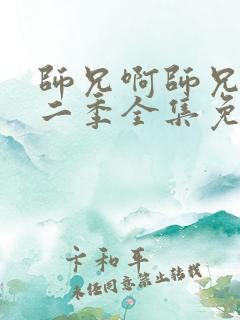 師兄啊師兄
二季全集免
卞和平
未经同意禁止转载